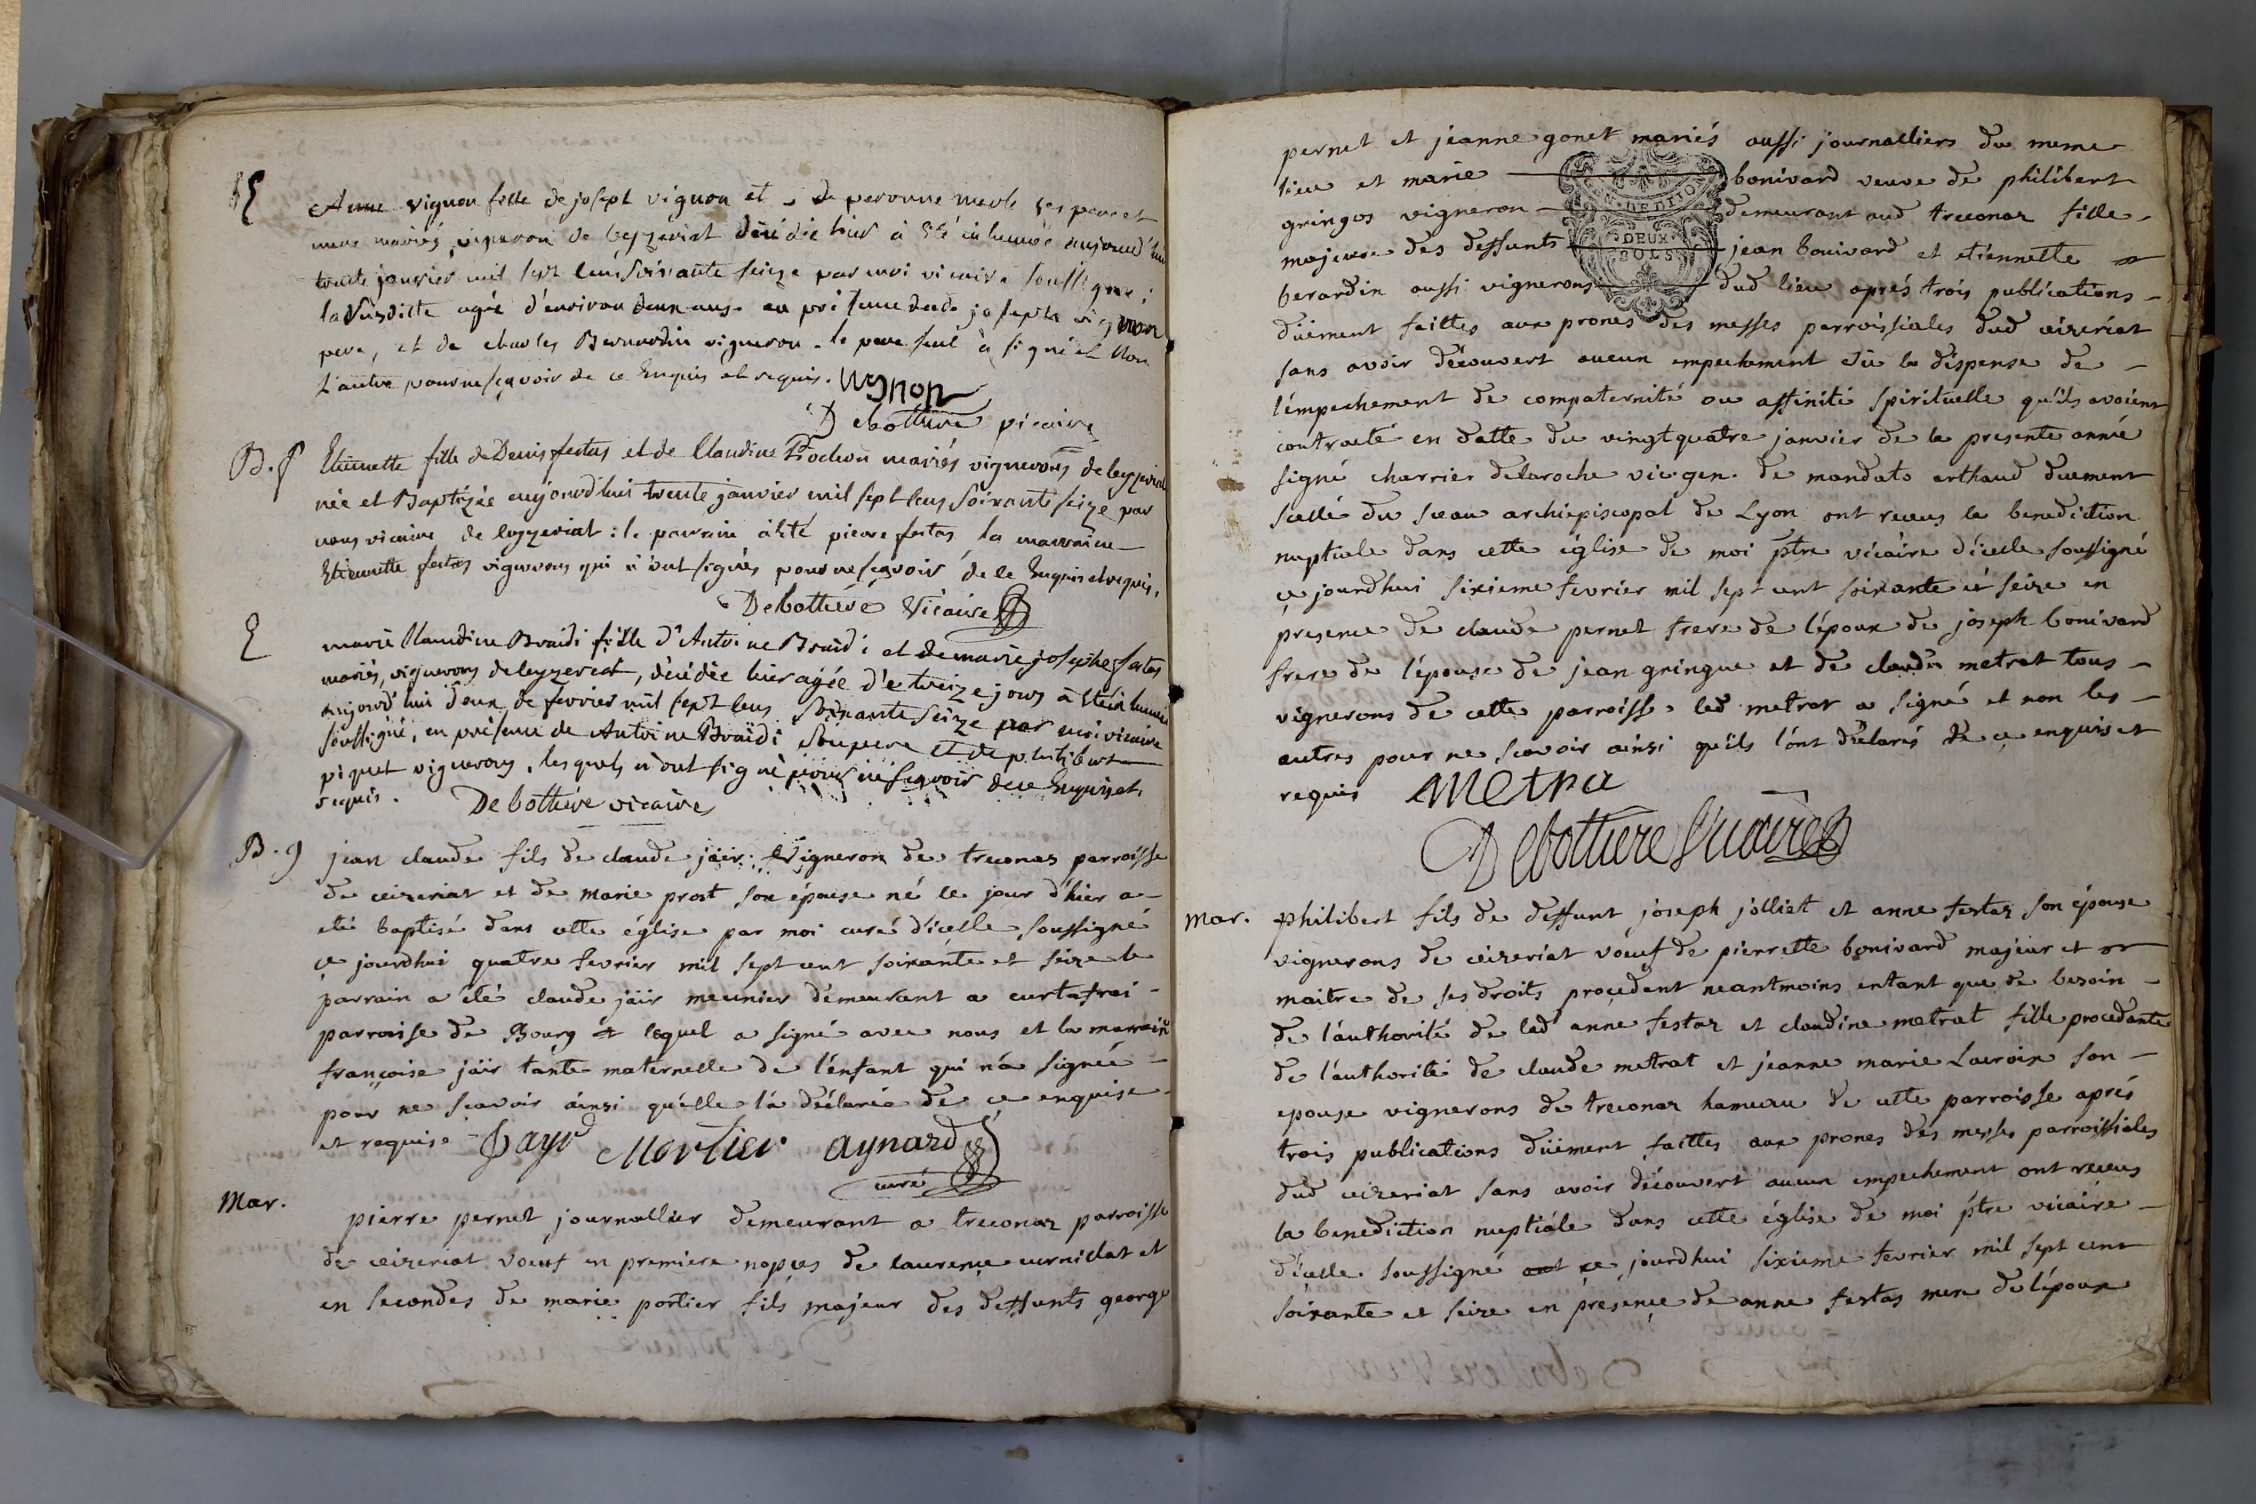 E
Anne vignon fille de josept vignon et de peronne meole ses pere et
mere mariés vigneron de leyzeriat décédée hier à été inhumée aujourd'hui
trente janvier mil sept cens soixante seize par moi vicaire soussigné ;
la susditte agée d'environ deux ans en présence dudt josepht vignon
pere, et de charles Bernardin vigneron le pere seul à signé et non
l'autre pour ne sçavoir de ce Enquis et requis. Vignon
Debottiere vicaire
B. f
Etiennette fille de Denis festas et de Claudine Rochon mariés vignerons de leyzeriat
née et Baptizée aujourd'hui trente janvier mil sept cens soixante seize par
nous vicaire de leyzeriat : le parrain à été pierre festas la marraine
Etiennette festas vignerons qui n'ont signés pour ne sçavoir de ce Enquis et requis.
Debottiere Vicaire
E
marie Claudine Braidi fille d'Antoine Braidi et de marie josephe festas
mariés, vignerons de leyzeriat, décédée hier agée de treize jours à été inhumée
aujourd'hui deux de fevrier mil sept cens soixante seize par moi vicaire
soussigné, en présence de Antoine Braïdi son pere et de philibert
piquet vignerons, lesquels n'ont signé pour ne sçavoir de ce Enquis et
requis. Debottiere vicaire
B. g
jean claude fils de claude jäir vigneron de treconas parroisse
de ceizeriat et de marie prost son épouse né le jour d'hier a
eté baptisé dans cette église par moi curé d'icelle soussigné
ce jourdhui quatre fevrier mil sept cent soixante et seize le
parrain a été claude jäir meunier demeurant a curtafrai
parroisse de Bourg lequel a signé avec nous et la marraine
françoise jäir tante maternelle de l'enfant qui n'a signée
pour ne scavoir ainsi qu'elle l'a déclarée de ce enquise
et requise Jayr Mortier aynard
curé
Mar.
pierre pernet journallier demeurant a treconaz parroisse
de ceizeriat voeuf en premiere nopces de laurence curnillat et
en secondes de marie portier fils majeur des deffunts george
pernet et jeanne gonet mariés aussi journalliers du meme
lieu et marie bonivard veuve de philibert
gringos vigneron demeurant aud treconaz fille
majeure des deffunts jean bonivard et etiennette
berardin aussi vignerons dud lieu aprés trois publications
düement faittes aux prones des messes parroissiales dud ceizeriat
sans avoir découvert aucun empechement vû la dispense de
l'empechement de compaternité ou affinité spirituelle qu'ils avoient
contracté en datte du vingtquatre janvier de la presente année
signé charrier delaroche vic gen. de mandato arthaud duement
scellé du sceau archiepiscopal de Lyon ont receus la benediction
nuptiale dans cette église de moi ptre vicaire d'icelle soussigné
ce jourdhui sixieme fevrier mil sept cent soixante et seize en
presence de claude pernet frere de l'époux de joseph bonivard
frere de l'épouse de jean gringue et de claude metrat tous
vignerons de cette parroisse. led metrat a signé et non les
autres pour ne scavoir ainsi qu'ils l'ont déclarés de ce enquis et
requis Metra
Debottiere Vicaire
DEUX
SOLS
mar.
philibert fils de deffunt joseph jolliet et anne festaz son épouse
vignerons de ceizeriat voeuf de pierrette bonivard majeur et
maitre de ses droits procedent neantmoins entant que de besoin
de l'authorité de lad anne festaz et claudine metrat fille procedante
de l'authorité de claude metrat et jeanne marie Lacroix son
epouse vignerons de treconaz hameau de cette parroisse aprés
trois publications düement faittes aux prones des messes parroissiales
dud ceizeriat sans avoir découvert aucun empechement ont receus
la benediction nuptiale dans cette église de moi ptre vicaire
d'icelle soussigné ce jourdhui sixieme fevrier mil sept cent
soixante et seize en presence de anne festas mere de l'époux